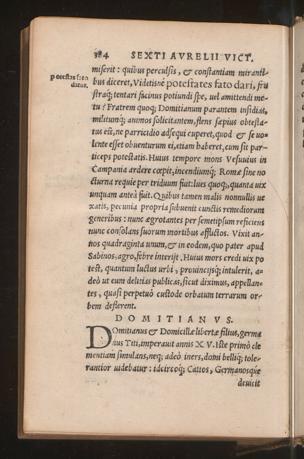 184 SEXTI AVRELII VICT.
miserit: quibus perculsis, & constantiam mirantibus diceret, Vidétisne potestates fato dari, fru
potestas fato datur.
straq́; tentari facinus potiundi spe, uel amittendi metu? Fratrem quoq; Domitianum parantem insidias,
militumq́; animos solicitantem, flens sæpius obtestatus est, ne parricidio adsequi cuperet, quod & se uolente esset obuenturum ei, etiam haberet, cum sit particeps potestatis. Huius tempore mons Vesuuius in
Campania ardere cœpit, incendiumq́; Romæ sine nocturna requie per triduum fuit: lues quoq; quanta uix
unquam anteà fuit. Quibus tamen malis nonnullis uexatis, pecunia propria subuenit cunctis remediorum
generibus: nunc ægrotantes per semetipsum reficiens
nunc consolans suorum mortibus afflictos. Vixit annos quadraginta unum, & in eodem, quo pater apud
Sabinos, agro, febre interijt. Huius mors credi uix potest, quantum luctus urbi, prouincijsq́; intulerit, adeò ut eum delitias publicas, sicut diximus, appellantes, quasi perpetuò custode orbatum terrarum orbem deflerent.
DOMITIANVS.
Domitianus & Domicillæ libertæ filius, germanus Titi, imperauit annis XV. Iste primò clementiam simulans, neq; adeò iners, domi belliq́; tolerantior uidebatur: idcircoq́; Cattos, Germanosque
deuicit